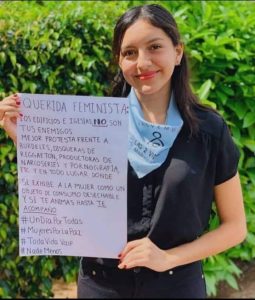 QUERIDA FEMINISTA:
LOS EDIFICIOS E IGLESIAS NO SON
TUS ENEMIGOS.
MEJOR PROTESTA FRENTE A
BURDELES, DISQUERAS DE
REGGAETON, PRODUCTORAS DE
NARCOSERIES Y PORNOGRAFÍA,
ETC Y EN TODO LUGAR DONDE
SE EXHIBE A LA MUJER COMO UN
OBJETO DE CONSUMO DESECHABLE
Y SI TE ANIMAS HASTA TE
ACOMPAÑO
#UnDíaPorTodas
#MujeresPorLaPaz
#TodaVidaVale
#NadieMenos